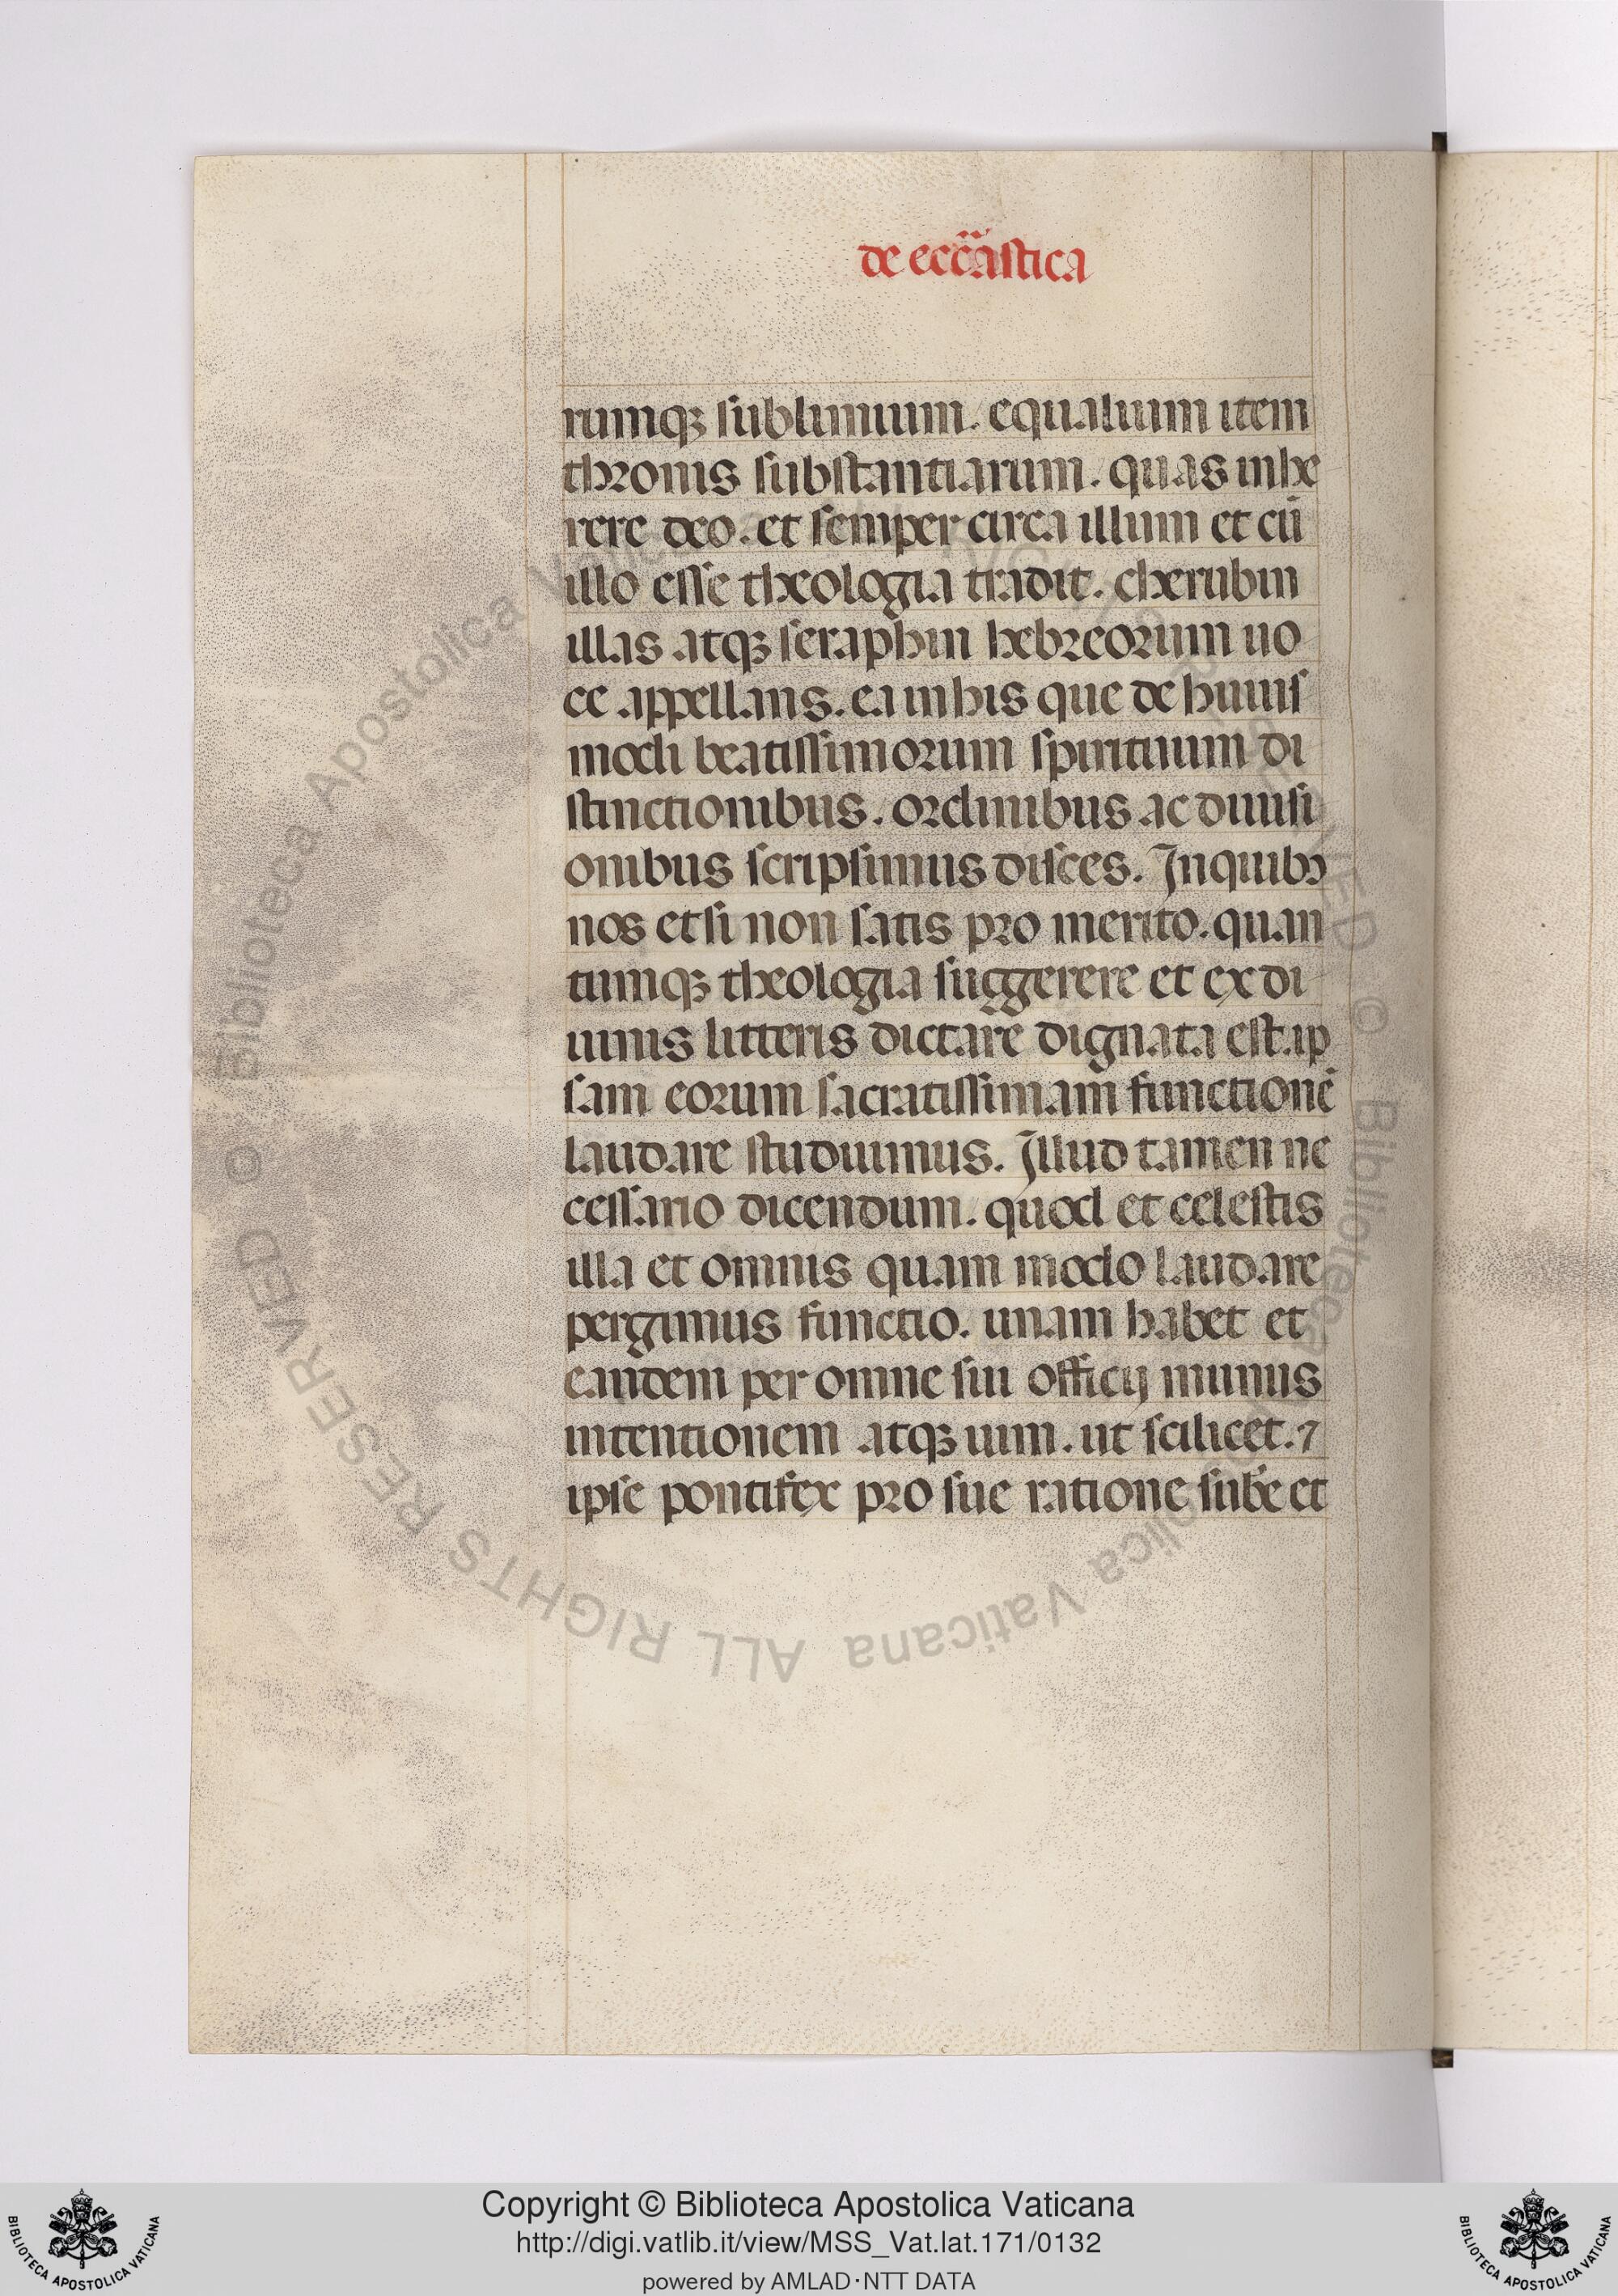 de ecc̈astica
rumqꝫ sublimium. equalium item
thronis substantiarum. quas inhe
rere deo. et semper circa illum et cū
illo esse theologia tradit. cherubin
illas atqꝫ seraphin hebreorum uo
ce appellans. ea in his que de huius
modi beatissimorum spirituum di
stinctionibus. ordinibus ac diuisi
onibus scripsimus disces. In quibꝫ
nos etsi non satis pro merito. quan
tumqꝫ theologia suggerere et ex di
uinis litteris dictare dignata est. ip
sam eorum sacratissimam functionē
laudare studuimus. Illud tamen ne
cessario dicendum. quod et celestis
illa et omnis quam modo laudare
pergimus functio. unam habet et
eandem per omne sui officij munus
intentionem atqꝫ uim. ut scilicet. ⁊
ipse pontifex pro sue ratione sub̄e et
© Biblioteca Apostolica Vaticana ALL RIGHTS RESERVED
Copyright © Biblioteca Apostolica Vaticana
http://digi.vatlib.it/view/MSS_Vat.lat.171/0132
powered by AMLAD·NTT DATA
BIBLIOTECA APOSTOLICA VATICANA
BIBLIOTECA APOSTOLICA VATICANA